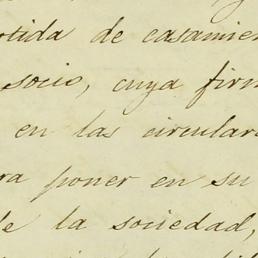 rtida de casamien
socio, cuya firm
en las circular
ra poner en su
de la sociedad,